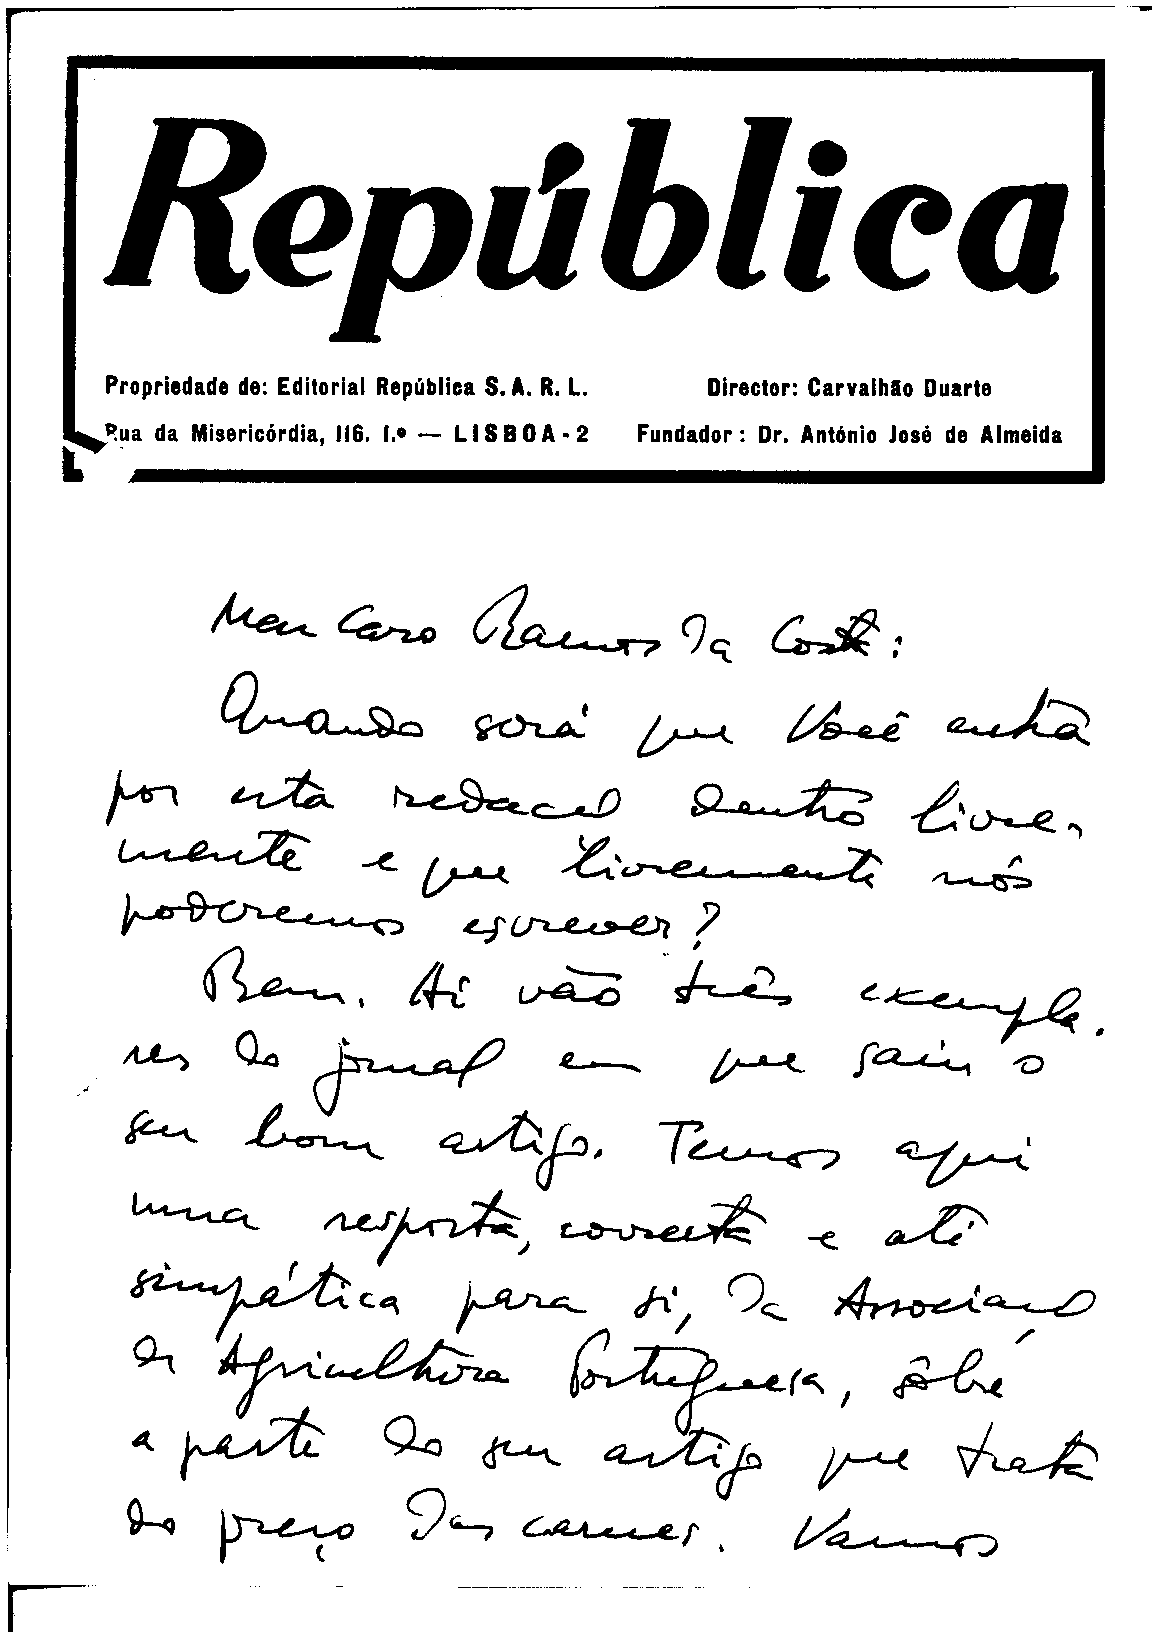 República
Propriedade de: Editorial República S. A. R. L.
Director: Carvalhão Duarte
Rua da Misericórdia, 116. 1.º — LISBOA-2
Fundador: Dr. António José de Almeida
Meu Caro Ramos da Costa:
Quando será que Você entra
por esta redacção dentro livre-
mente e que livremente nós
poderemos escrever?
Bem. Aí vão três exempla-
res do jornal em que saiu o
seu bom artigo. Temos aqui
uma resposta, correcta e até
simpática para si, da Associação
da Agricultura Portuguesa, sôbre
a parte do seu artigo que trata
do preço das carnes. Vamos